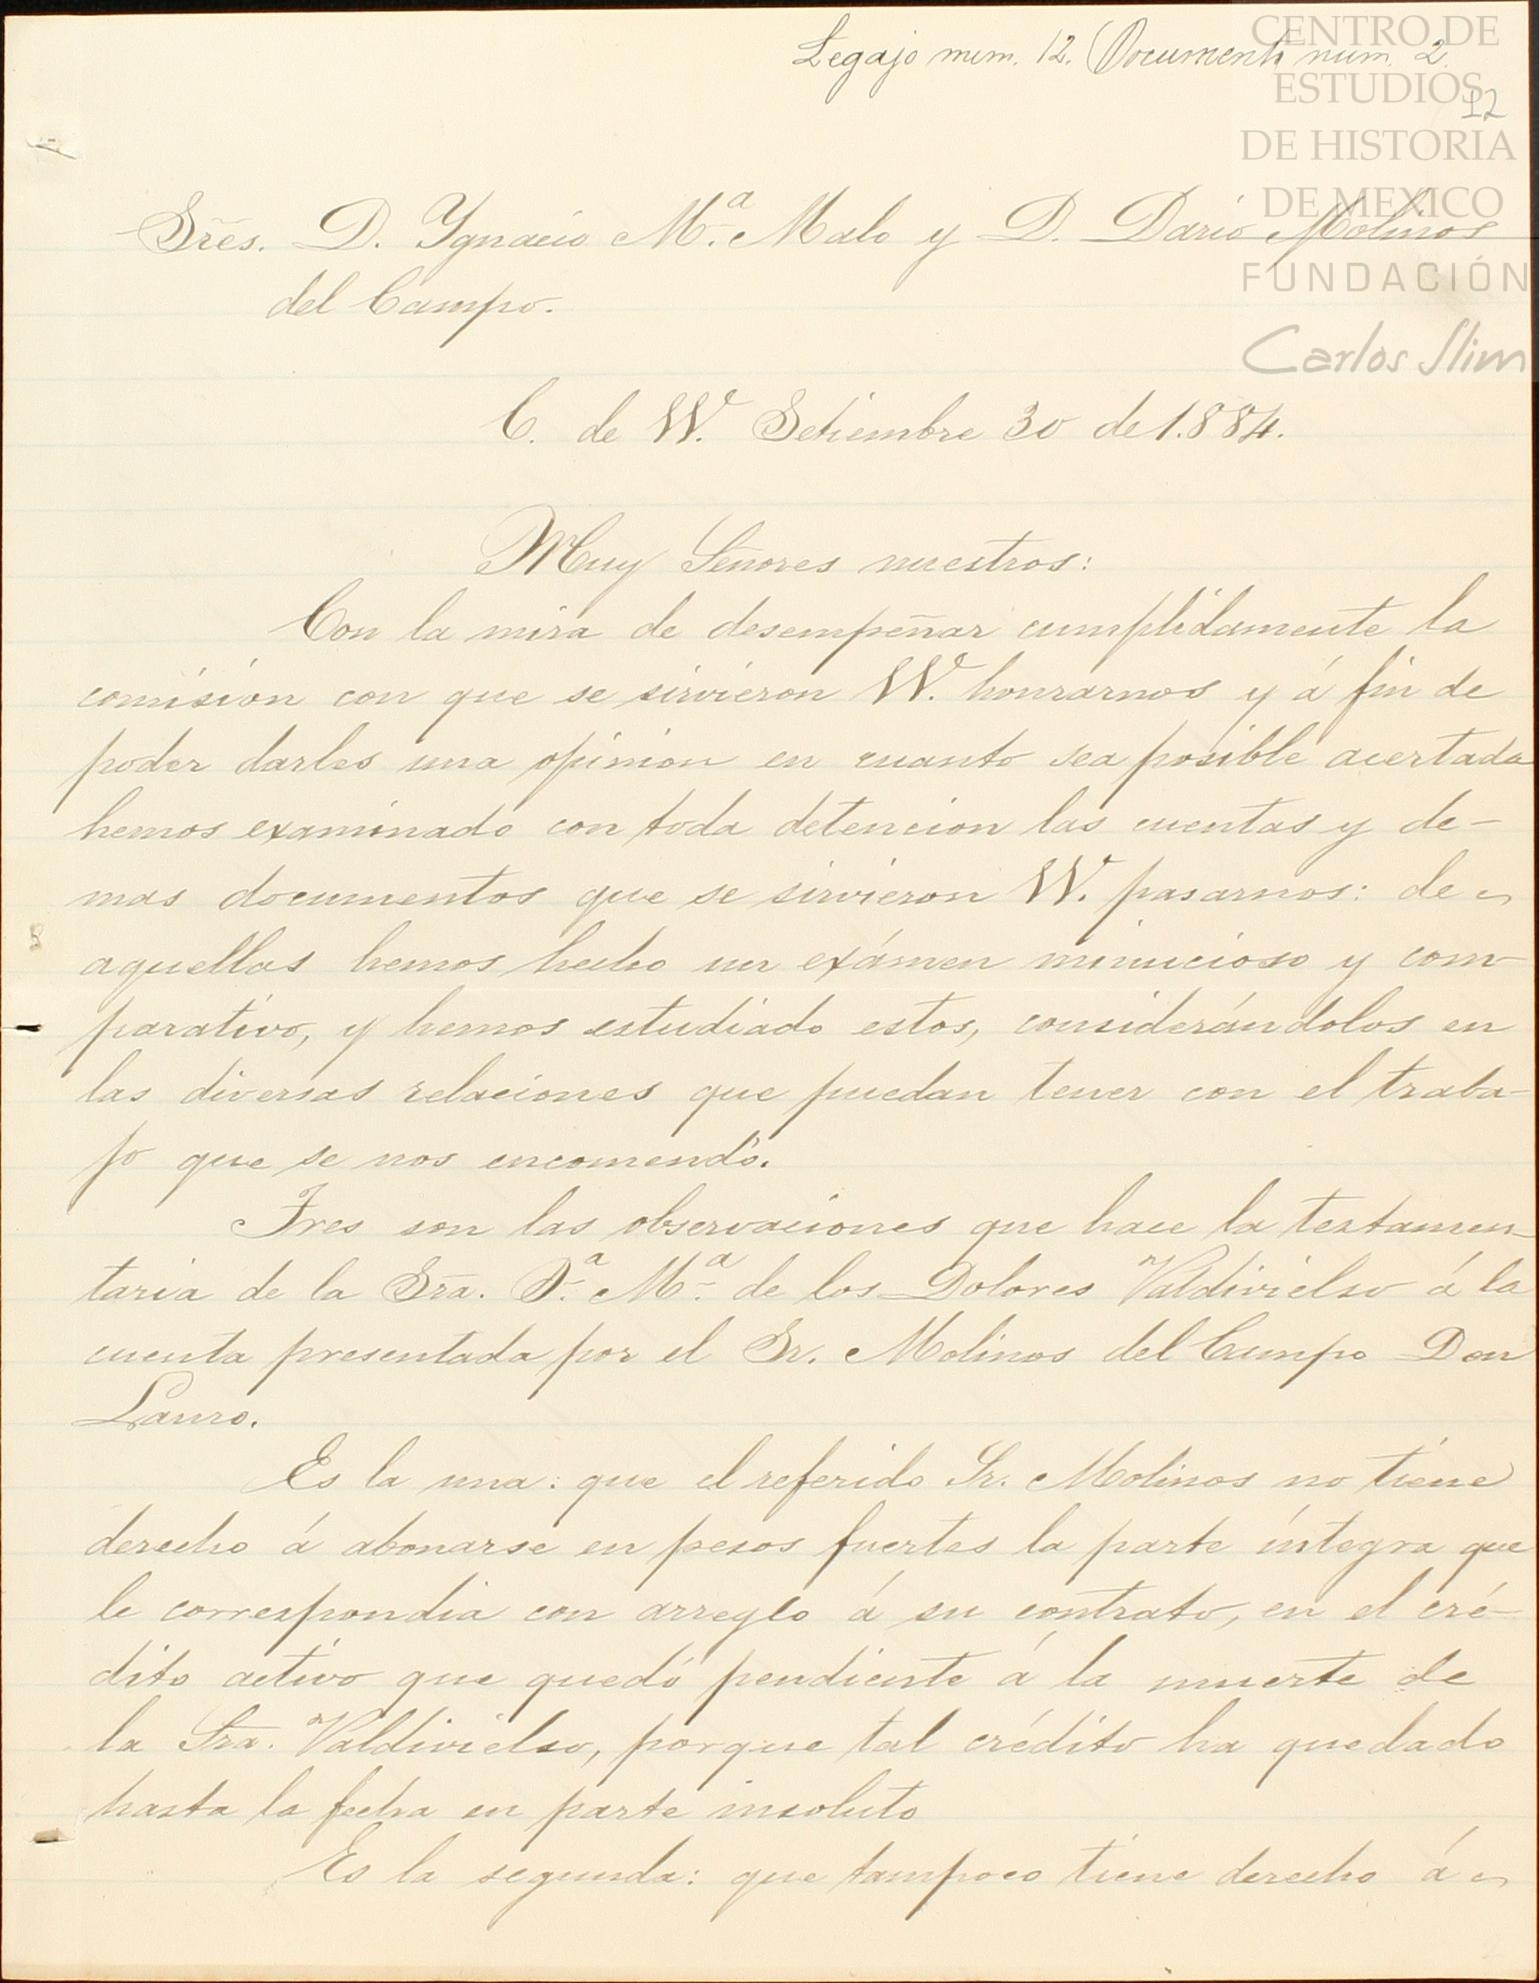 Legajo num. 12. Documento num. 2
12
CENTRO DE
ESTUDIOS
DE HISTORIA
DE MEXICO
FUNDACIÓN
Carlos Slim
Sres. D. Ygnacio Mª. Malo y D. Dario Molinos
del Campo.
C. de VV. Setiembre 30 de 1.884.
Muy Señores nuestros:
Con la mira de desempeñar cumplidamente la
comision con que se sirvieron VV. honrarnos y á fin de
poder darles una opinion en cuanto sea posible acertada
hemos examinado con toda detencion las cuentas y de-
mas documentos que se sirvieron VV. pasarnos: de
aquellas hemos hecho un exámen minucioso y com-
parativo, y hemos estudiado estos, considerándolos en
las diversas relaciones que puedan tener con el traba-
jo que se nos encomendó.
Tres son las observaciones que hace la testamen-
taria de la Sra. Dª. Mª. de los Dolores Valdivielso á la
cuenta presentada por el Sr. Molinos del Campo Don
Lauro.
Es la una: que el referido Sr. Molinos no tiene
derecho á abonarse en pesos fuertes la parte íntegra que
le correspondia con arreglo á su contrato, en el cré-
dito activo que quedó pendiente á la muerte de
la Sra. Valdivielso, porque tal crédito ha quedado
hasta la fecha en parte insoluto
Es la segunda: que tampoco tiene derecho á